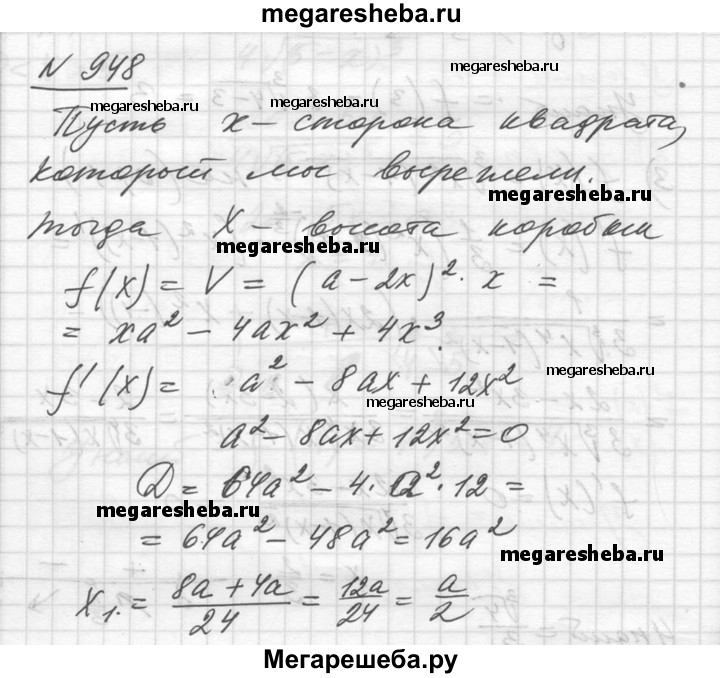 megaresheba.ru
N 948
megaresheba.ru megaresheba.ru
Пусть x - сторона квадрата,
который мы вырезали.
megaresheba.ru
тогда X - высота коробки
megaresheba.ru
f(x) = V = (a - 2x)² · x =
= xa² - 4ax² + 4x³.
megaresheba.ru
f'(x) = a² - 8ax + 12x²
megaresheba.ru
a² - 8ax + 12x² = 0
D = 64a² - 4 · a² · 12 =
megaresheba.ru
= 64a² - 48a² = 16a²
megaresheba.ru
X₁ = (8a + 4a)/24 = 12a/24 = a/2
Мегарешеба.ру